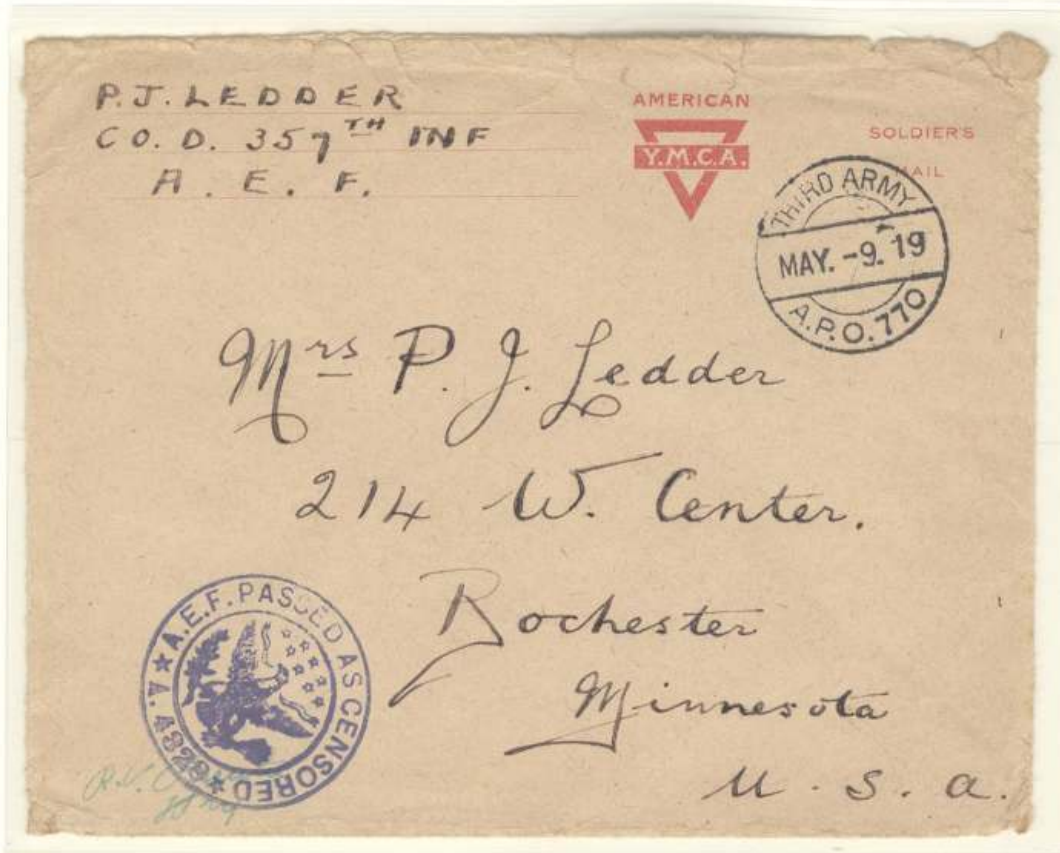 P.J. LEDDER
CO. D. 357TH INF
A. E. F.
AMERICAN
Y.M.C.A.
SOLDIER'S
MAIL
THIRD ARMY
MAY. -9. 19
A.P.O. 770
Mrs P. J. Ledder
214 W. Center.
Rochester
Minnesota
U. S. a.
A.E.F. PASSED AS CENSORED